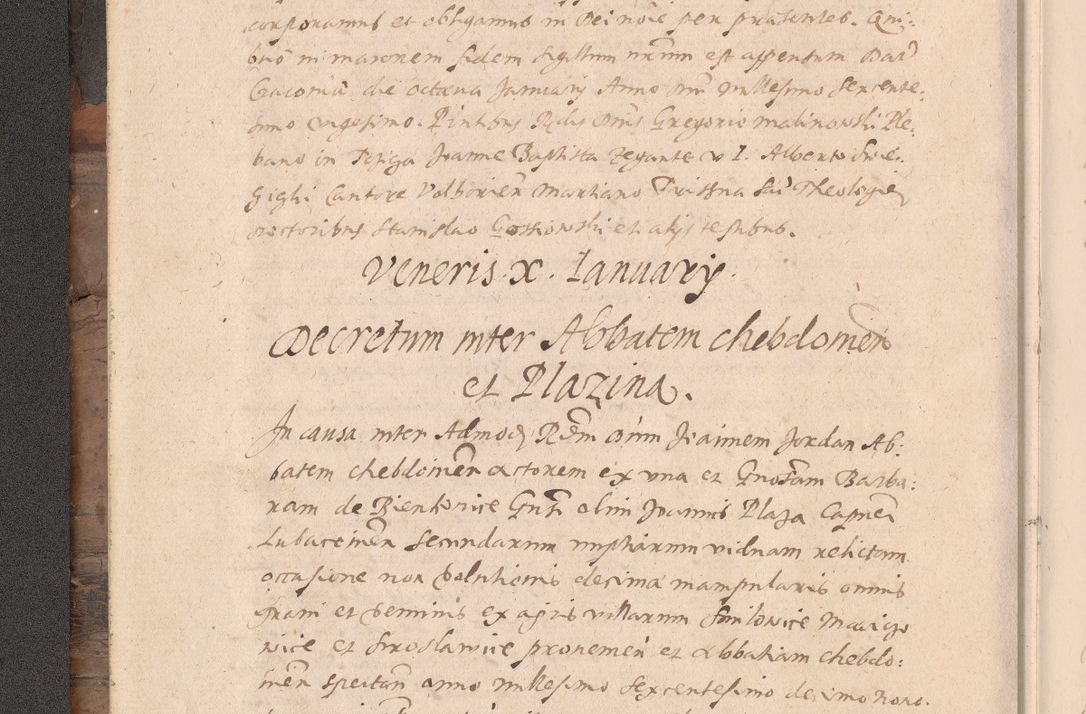 corporamus et obligamus in Dei no͞ie per praesentes. Qui-
bus in maiorem fidem sigillum n͞rum est appensum Dat͞
Cracoviae die octava Januarij Anno D͞ni Millesimo Sexcente-
simo vigesimo. P͞ntibus R͞dis D͞nis Gregorio Malinowski Ple-
bano in Joanne Baptista Zegante V I. Alberto
Cantore Volborien͞ Martiano Tristina Sac͞ Theologiae
Doctoribus Stanislao Gostkowski et alijs testibus.
Veneris X. Ianuarij.
Decretum inter Abbatem chebdomen͞
et Plazina.
In causa inter Admod͞ R͞dum D͞num Joannem Jordan Ab-
batem chebdomen͞ actorem ex una et G͞nosam Barba-
ram de Bienkovice G͞nsi olim Joannis Plaza Cap͞nei
Lubacinen͞ secundarum nuptiarum viduam relictam
occasione non solutionis decimae manipularis omnis
grani et seminis ex agris villarum Smilovice
wice et Siroslavice provenien͞ et Abbatiam chebdo-
men͞ spectan͞ anno millesimo sexcentesimo decimo nono.